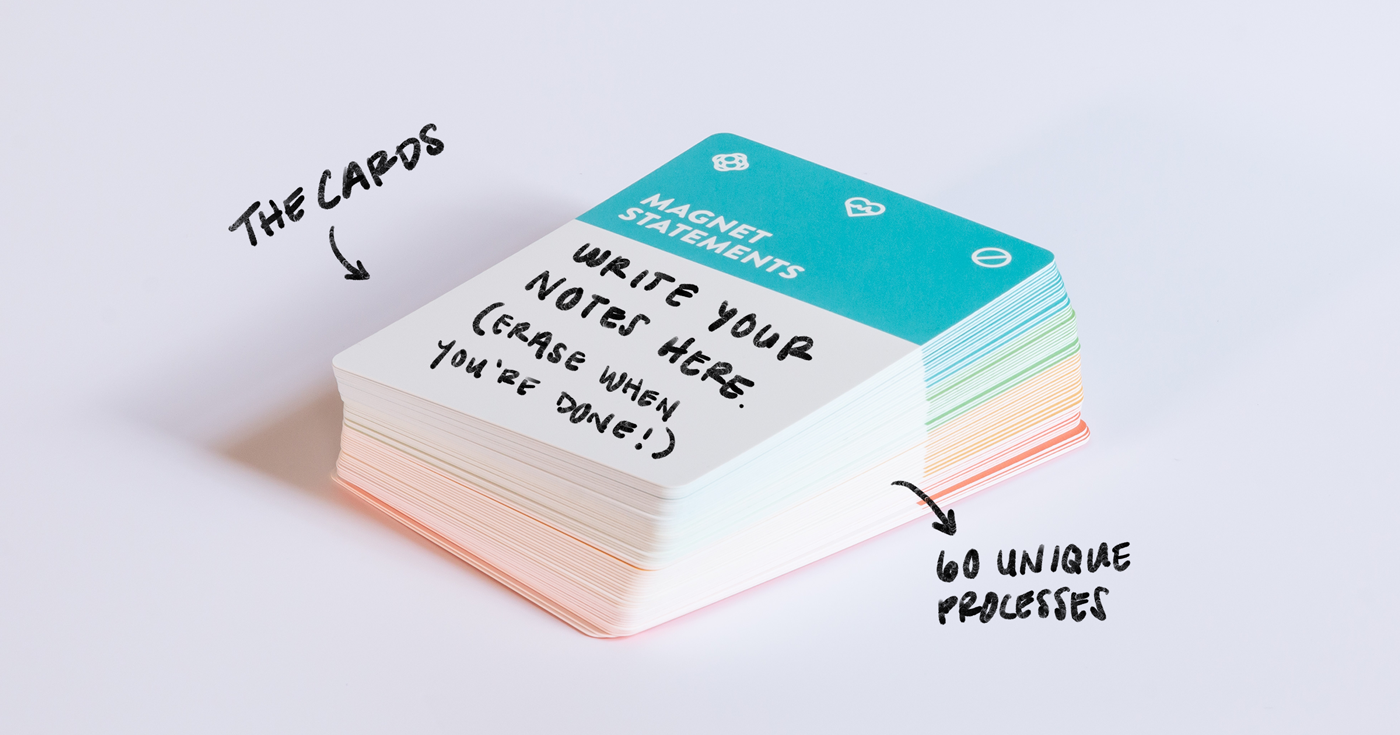 THE CARDS
MAGNET
STATEMENTS
WRITE YOUR
NOTES HERE.
(ERASE WHEN
YOU'RE DONE!)
60 UNIQUE
PROCESSES